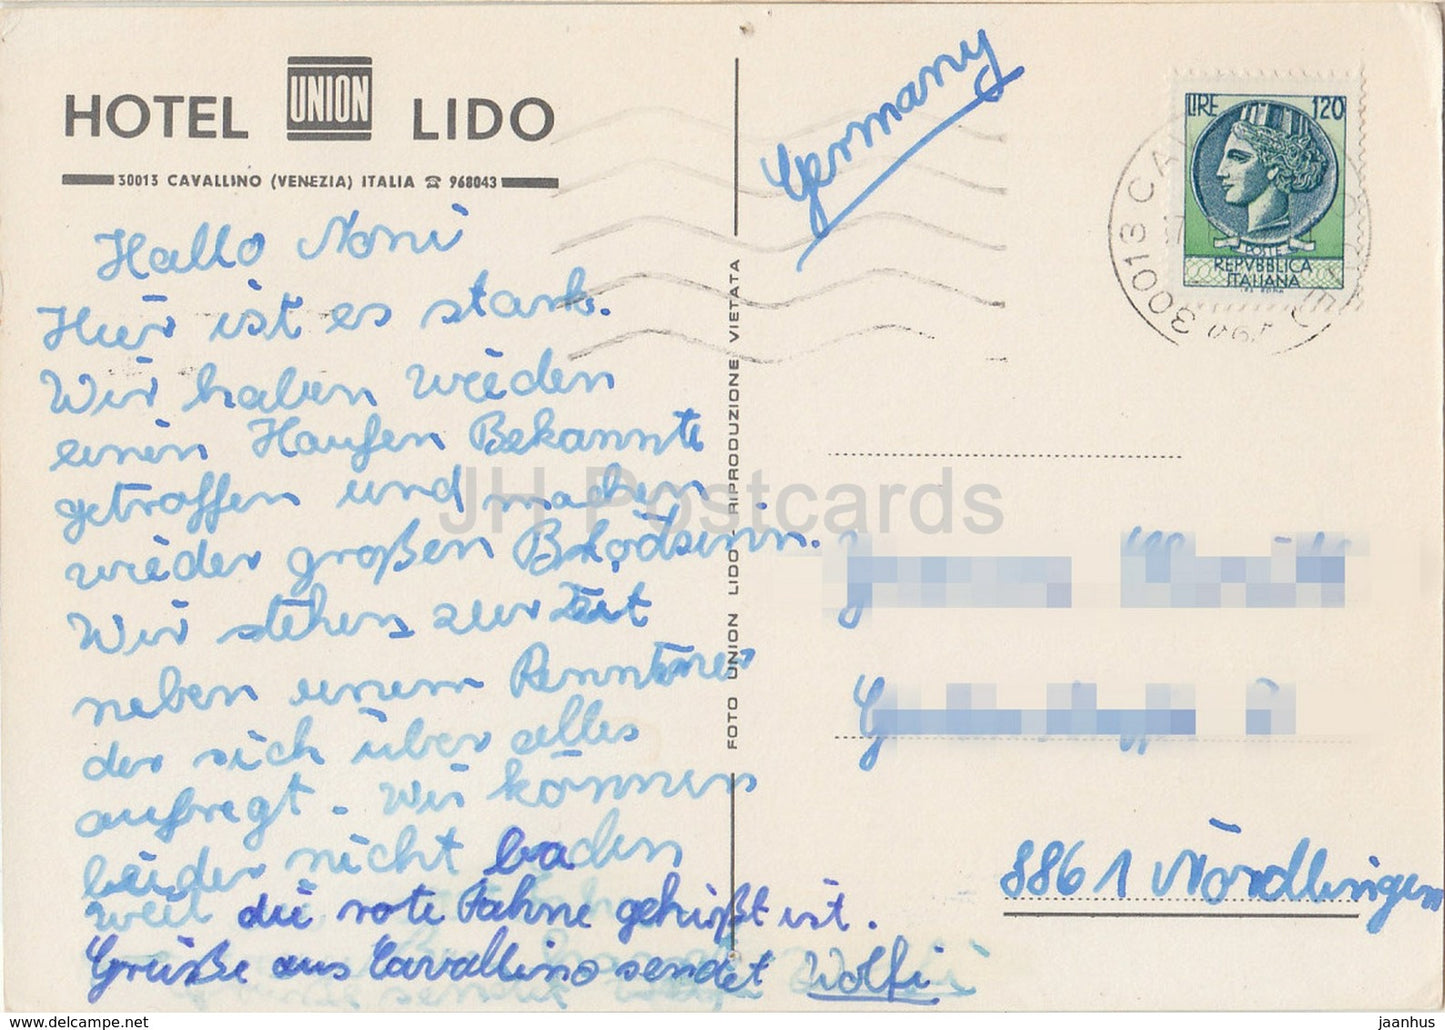 HOTEL UNION LIDO
30013 CAVALLINO (VENEZIA) ITALIA ☎ 968043
Hallo Noni
Hier ist es stark.
Wir haben wieder
einen Haufen Bekannte
getroffen und machen
wieder großen Blödsinn.
Wir stehen zur Zeit
neben einem
der sich über alles
aufregt. Wir können
leider nicht baden
weil die rote Fahne gehißt ist.
Grüße aus Cavallino sendet Wolfi
FOTO UNION LIDO - RIPRODUZIONE VIETATA
Germany
LIRE 120
POSTE
REPVBBLICA
ITALIANA
30013 CA
8861 Nördlingen
JH Postcards
www.delcampe.net
jaanhus